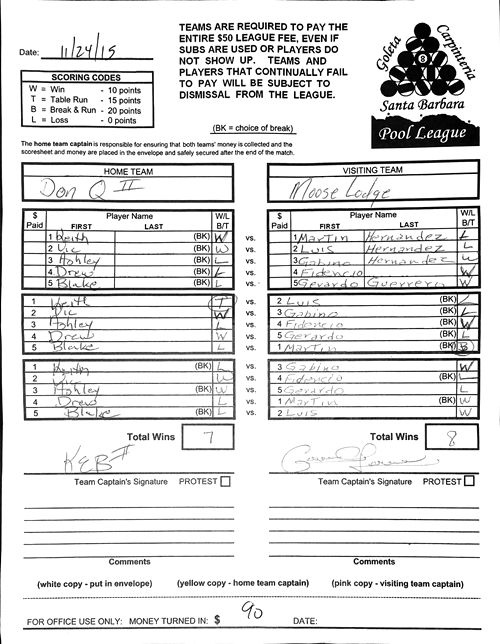 TEAMS ARE REQUIRED TO PAY THE
ENTIRE $50 LEAGUE FEE, EVEN IF
SUBS ARE USED OR PLAYERS DO
NOT SHOW UP. TEAMS AND
PLAYERS THAT CONTINUALLY FAIL
TO PAY WILL BE SUBJECT TO
DISMISSAL FROM THE LEAGUE.
(BK = choice of break)
Date: 11/24/15
SCORING CODES
W = Win - 10 points
T = Table Run - 15 points
B = Break & Run - 20 points
L = Loss - 0 points
Goleta Carpinteria
8
Santa Barbara
Pool League
The home team captain is responsible for ensuring that both teams' money is collected and the
scoresheet and money are placed in the envelope and safely secured after the end of the match.
HOME TEAM VISITING TEAM
Don Q II Moose Lodge
$ Paid Player Name FIRST LAST W/L B/T $ Paid Player Name FIRST LAST W/L B/T
1 Keith (BK) W vs. 1 Martin Hernandez L
2 Vic (BK) W vs. 2 Luis Hernandez L
3 Ashley (BK) L vs. 3 Gabino Hernandez W
4 Drew (BK) L vs. 4 Fidencio W
5 Blake (BK) L vs. 5 Gerardo Guerrero W
1 Keith T vs. 2 Luis (BK) L
2 Vic W vs. 3 Gabino (BK) L
3 Ashley L vs. 4 Fidencio (BK) W
4 Drew W vs. 5 Gerardo (BK) L
5 Blake L vs. 1 Martin (BK) B
1 (BK) L vs. 3 Gabino W
2 W vs. 4 Fidencio (BK) L
3 Ashley (BK) W vs. 5 Gerardo L
4 Drew L vs. 1 Martin (BK) W
5 Blake (BK) L vs. 2 Luis W
Total Wins 7 Total Wins 8
KEB II
Team Captain's Signature PROTEST Team Captain's Signature PROTEST
Comments Comments
(white copy - put in envelope) (yellow copy - home team captain) (pink copy - visiting team captain)
FOR OFFICE USE ONLY: MONEY TURNED IN: $ 90 DATE: